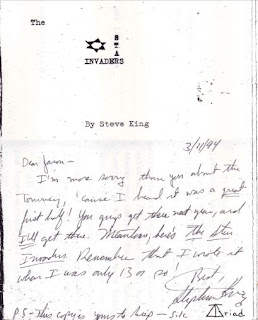 The
STAR
INVADERS
By Steve King
3/11/94
Dear Jason—
I'm more sorry than you about the
Tourney, 'cause I heard it was a great
first half! You guys get there next year, and
I'll get there. Meantime, here's The Star
Invaders. Remember that I wrote it
when I was only 13 or so!
Best,
Stephen King
PS – This copy is yours to keep – S.K.
Triad